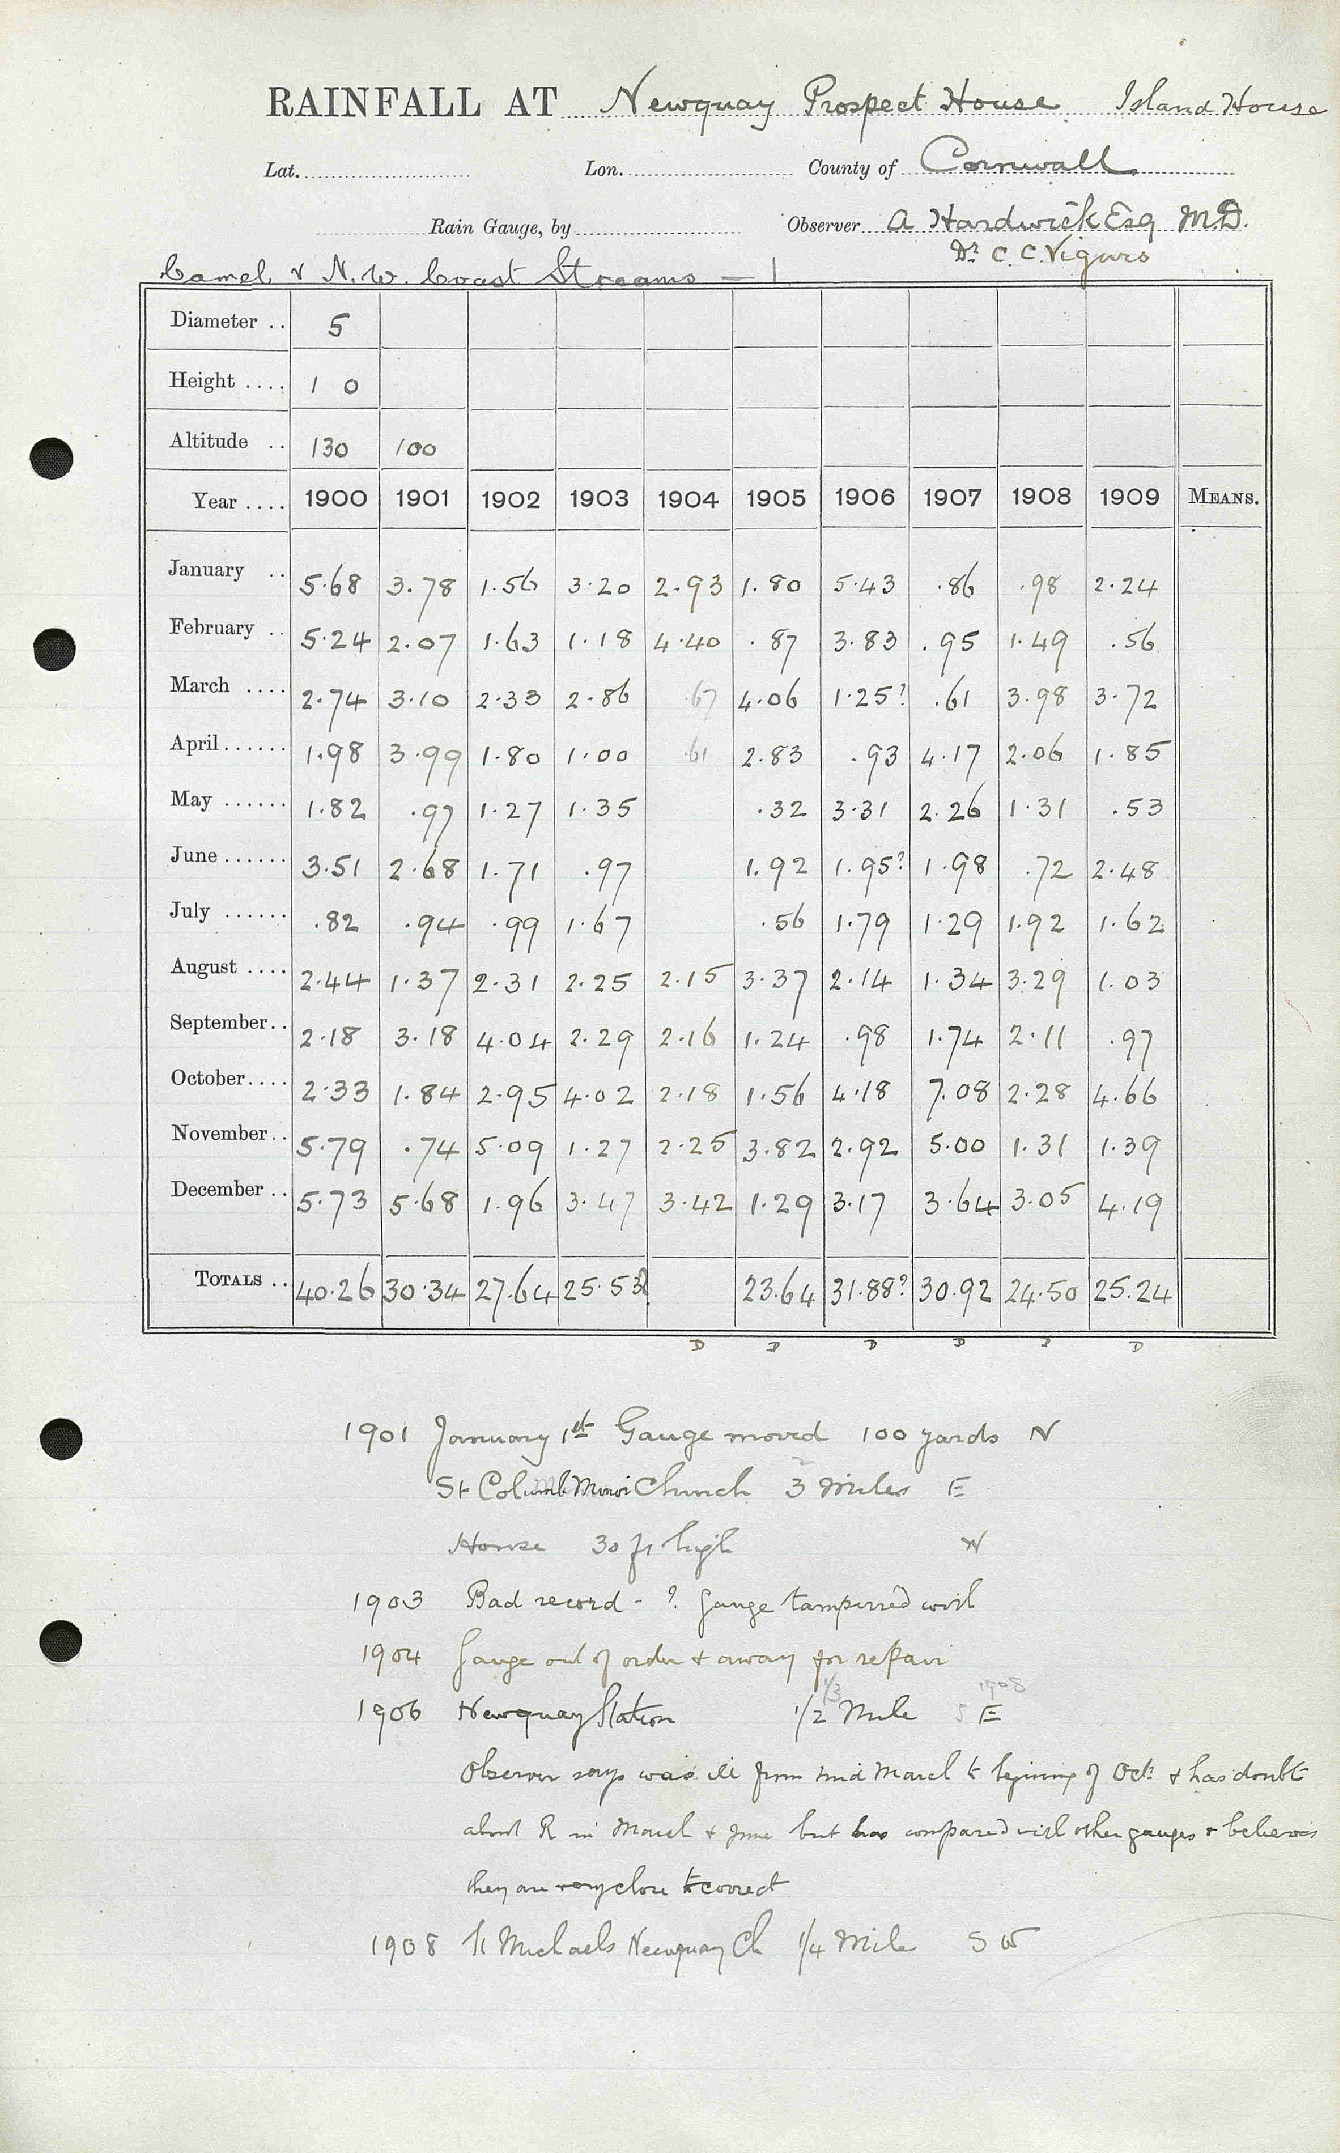 RAINFALL AT Newquay Prospect House Island House
Lat. Lon. County of Cornwall
Rain Gauge, by Observer A Hardwick Esq M.D.
Dr C. C. Vigurs
Camel & N.W. Coast Streams — 1
Diameter .. 5
Height .... 1 0
Altitude .. 130 100
Year .... 1900 1901 1902 1903 1904 1905 1906 1907 1908 1909 MEANS.
January .. 5.68 3.78 1.56 3.20 2.93 1.80 5.43 .86 .98 2.24
February .. 5.24 2.07 1.63 1.18 4.40 .87 3.83 .95 1.49 .56
March .... 2.74 3.10 2.33 2.86 .67 4.06 1.25? .61 3.98 3.72
April ...... 1.98 3.99 1.80 1.00 .61 2.83 .93 4.17 2.06 1.85
May ...... 1.82 .97 1.27 1.35 .32 3.31 2.26 1.31 .53
June ...... 3.51 2.68 1.71 .97 1.92 1.95? 1.98 .72 2.48
July ...... .82 .94 .99 1.67 .56 1.79 1.29 1.92 1.62
August .... 2.44 1.37 2.31 2.25 2.15 3.37 2.14 1.34 3.29 1.03
September.. 2.18 3.18 4.04 2.29 2.16 1.24 .98 1.74 2.11 .97
October.... 2.33 1.84 2.95 4.02 2.18 1.56 4.18 7.08 2.28 4.66
November.. 5.79 .74 5.09 1.27 2.25 3.82 2.92 5.00 1.31 1.39
December .. 5.73 5.68 1.96 3.47 3.42 1.29 3.17 3.64 3.05 4.19
TOTALS .. 40.26 30.34 27.64 25.53 23.64 31.88? 30.92 24.50 25.24
D D D D D D
1901 January 1st Gauge moved 100 yards N
St Columb Minor Church 3 Miles E
House 30 ft high W
1903 Bad record - ? Gauge tamperred with
1904 Gauge out of order & away for repair
1906 Newquay Station 1/2 1/3 Mile S E 1908
Observer says was ill from mid March to begining of Oct: & has doubt
about R in March & June but has compared with other gauges & believes
they are very close to correct
1908 St Michaels Newquay Ch 1/4 Mile S W